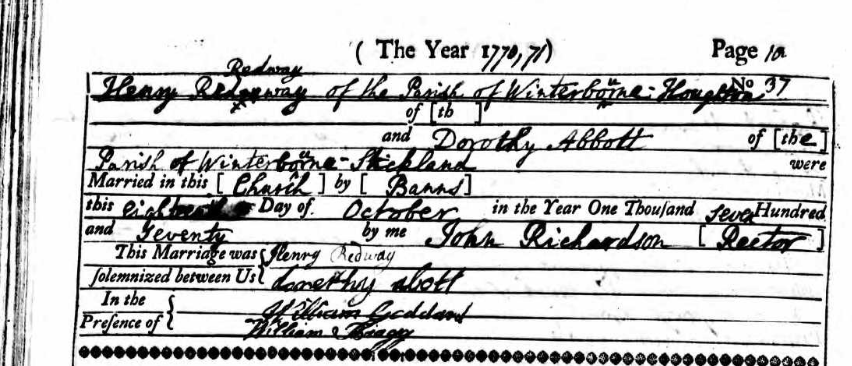 ( The Year 1770,71) Page 10
Redway
Henry Redway of the Parish of Winterbourne-Houghton No 37
of [th ]
and Dorothy Abbott of [the]
Parish of Winterbourne-Stickland were
Married in this [Church] by [Banns]
this eighteenth Day of October in the Year One Thouſand Seven Hundred
and Seventy by me John Richardson [Rector]
This Marriage was { Henry Redway
ſolemnized between Us { dorethy abott
In the { William Goddard
Preſence of { William